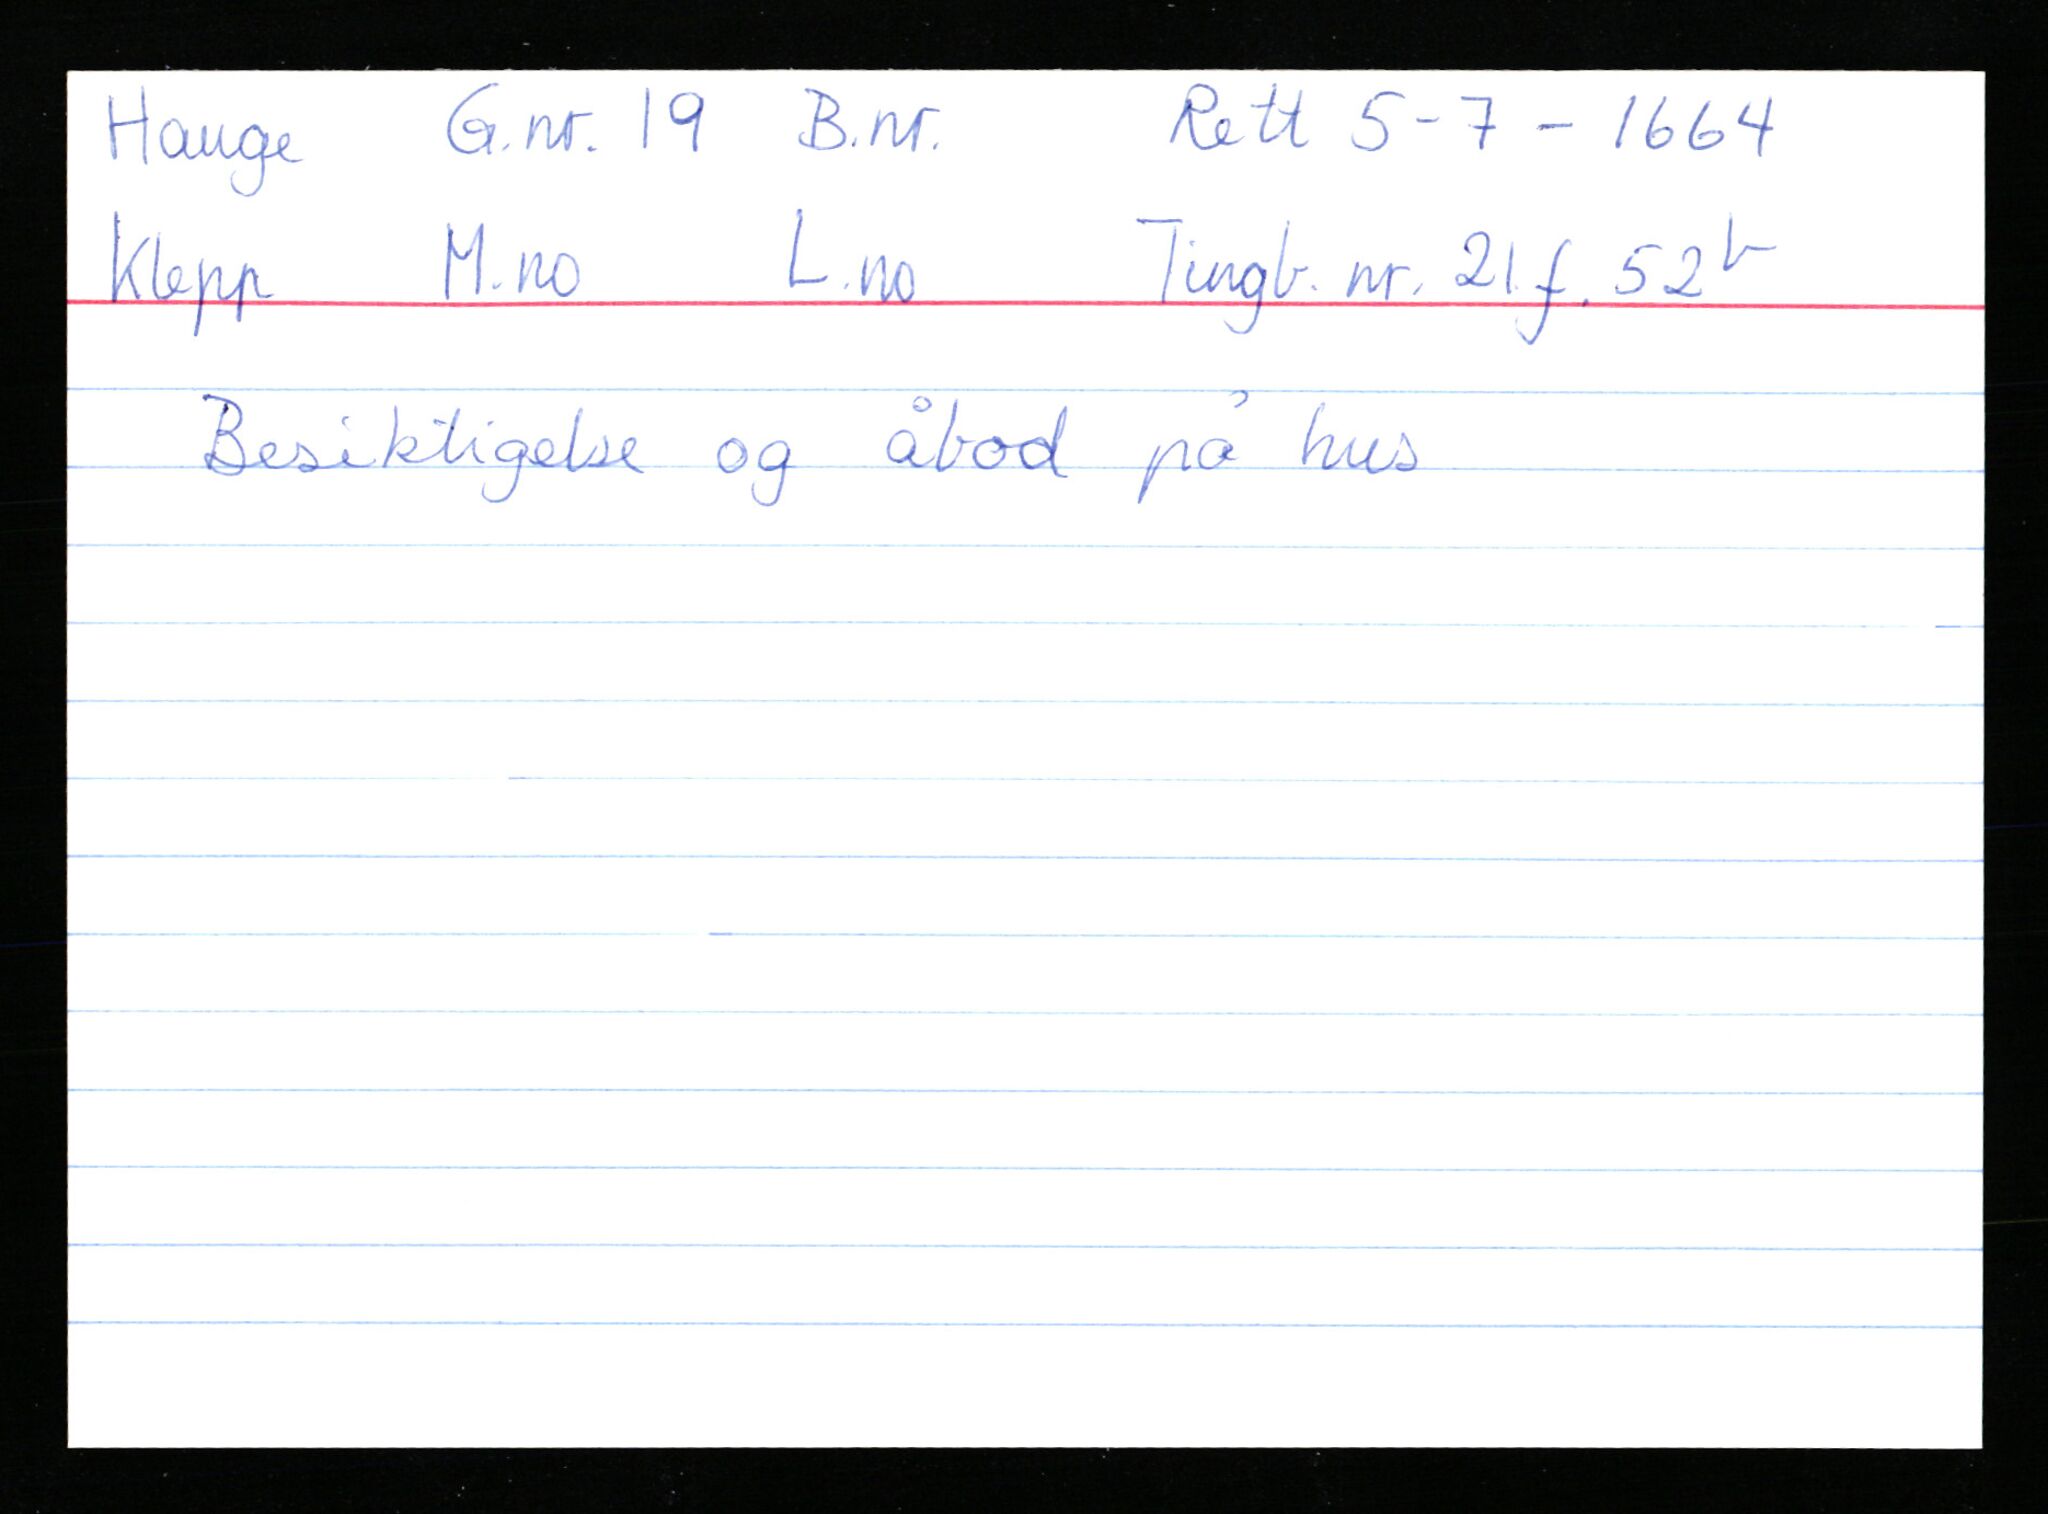 Hauge G.nr. 19 B.nr. Rett 5-7-1664
Klepp M.no L.no Tingb. nr. 21. f. 52b
Besiktigelse og åbod på hus